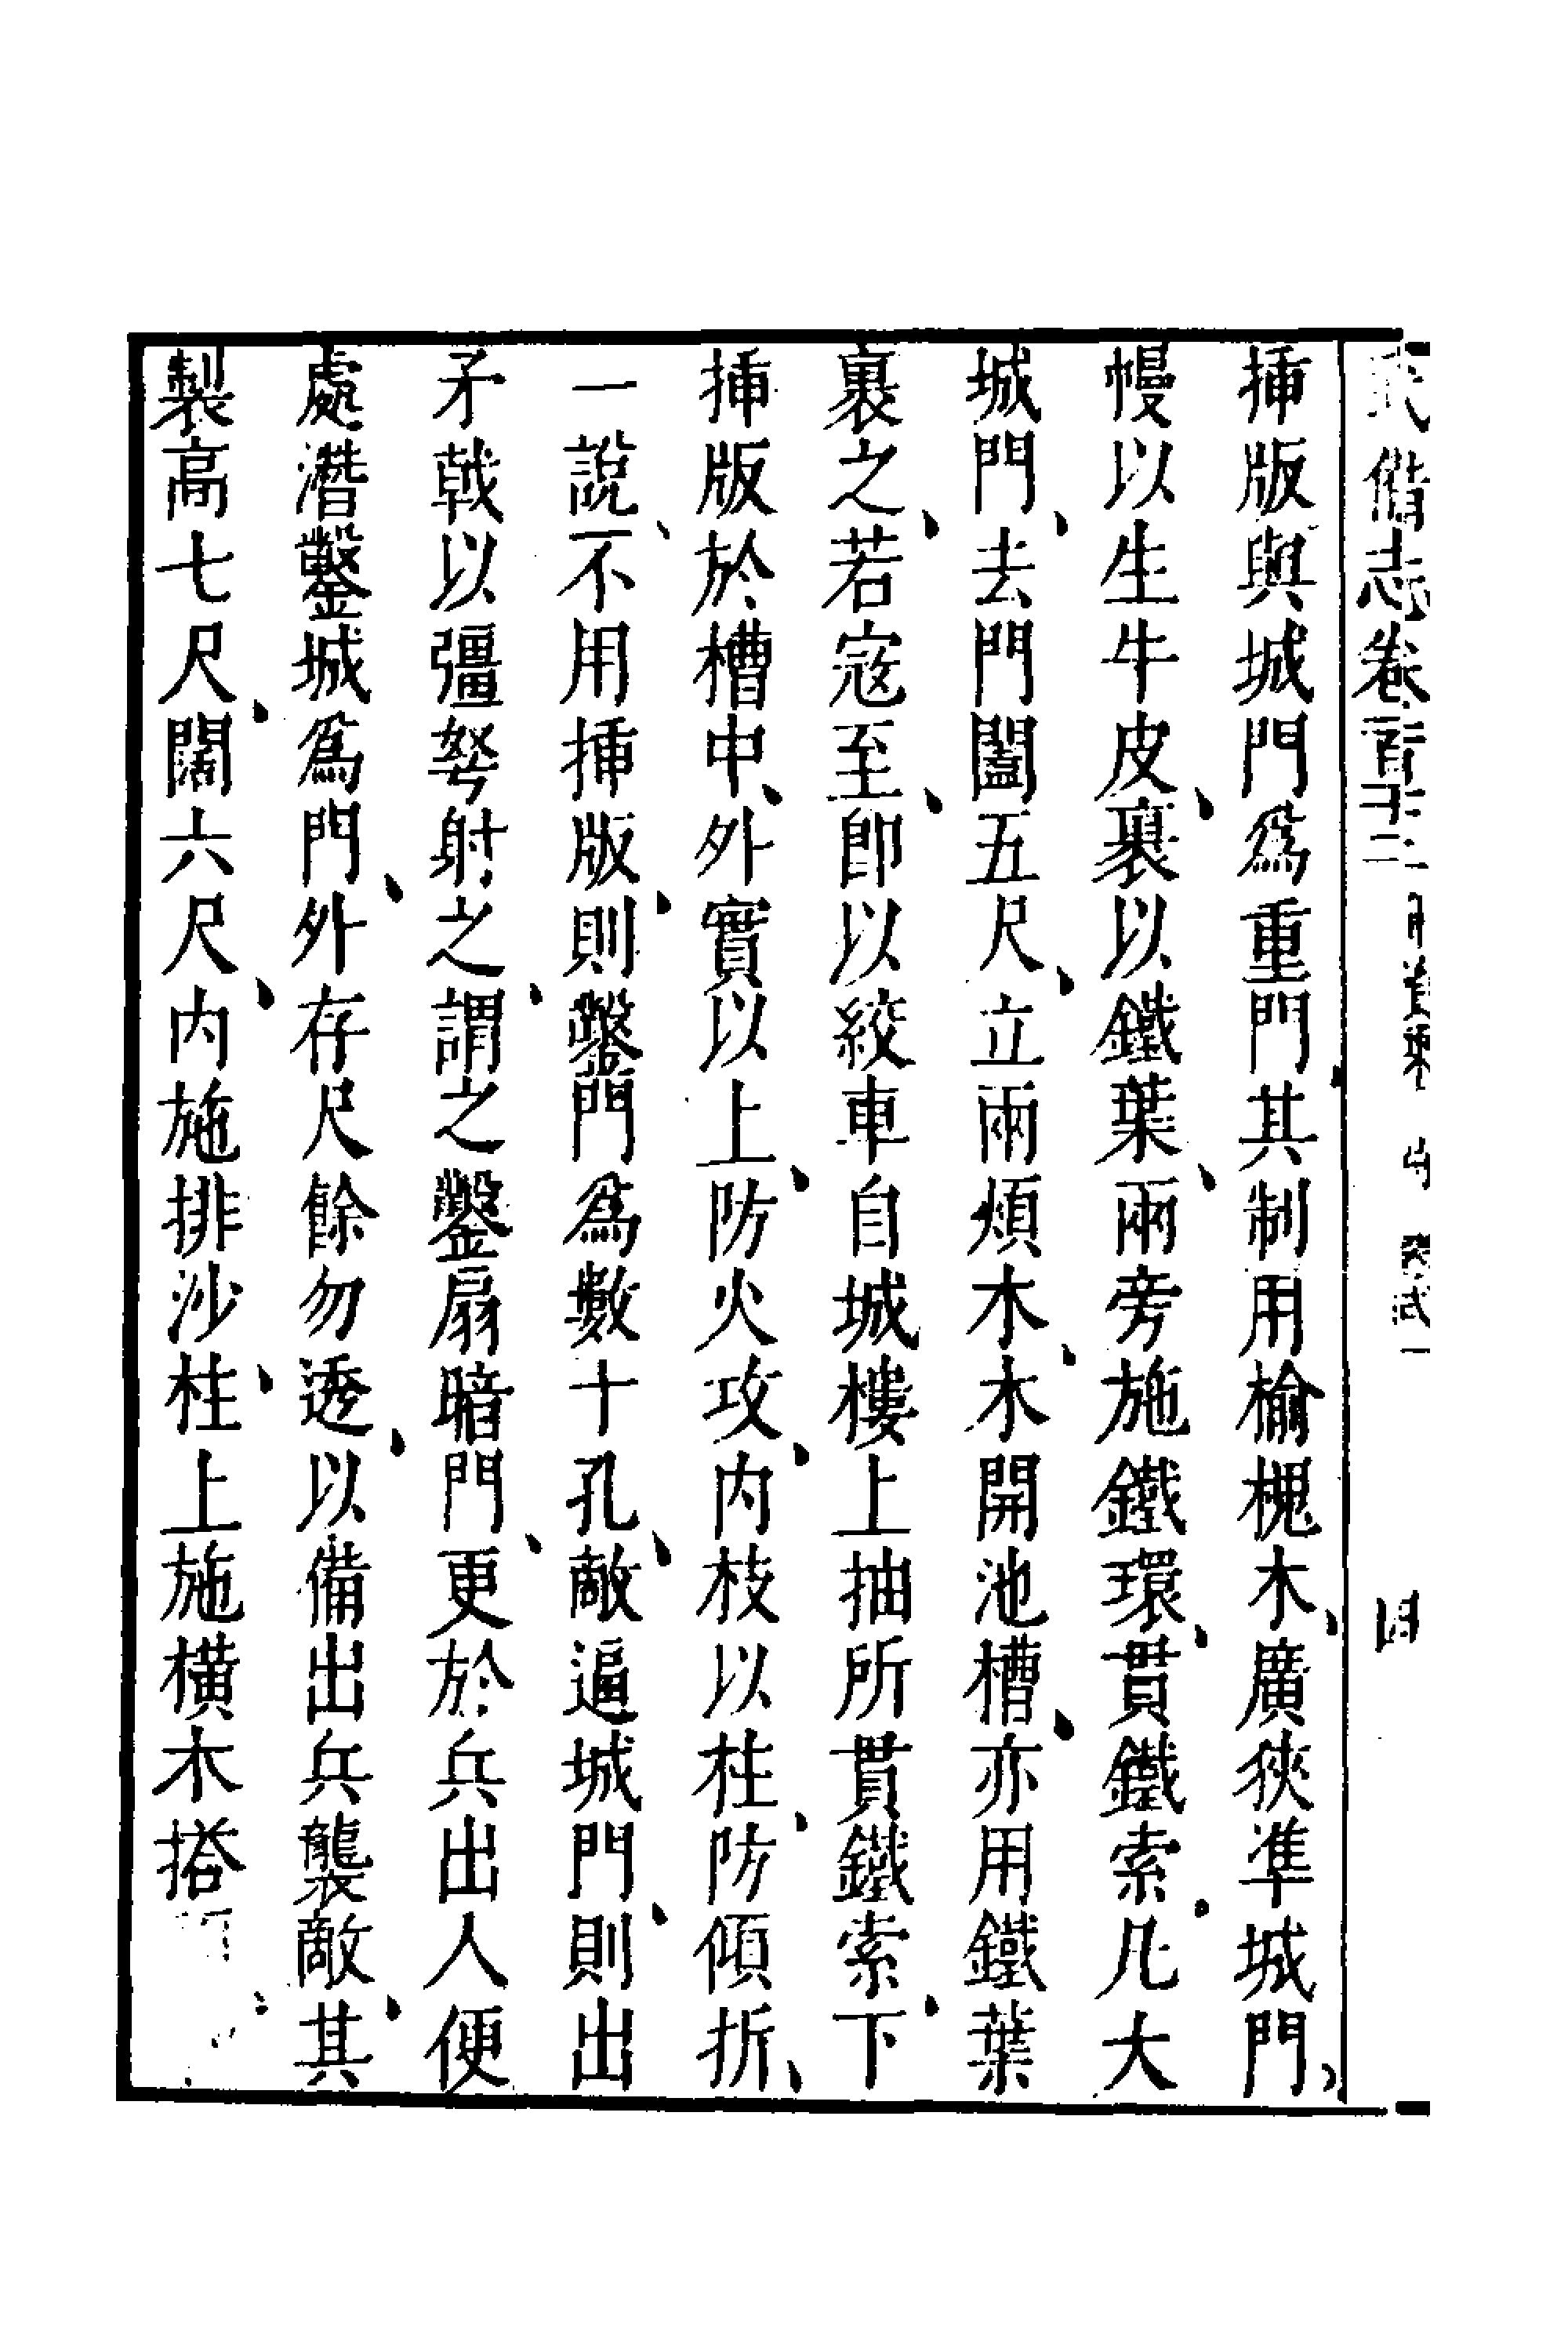 備志卷 四
揷版與城門爲重門其制用榆槐木、廣狹凖城門、
幔以生牛皮、裹以鐵葉、兩旁施鐵環、貫鐵索、凡大
城門、去門闔五尺、立兩頰木、木開池槽、亦用鐵葉
裹之、若寇至、卽以絞車自城樓上抽所貫鐵索、下
揷版於槽中、外實以上、防火攻、内枝以柱、防傾折、
一說、不用揷版、則鑿門爲數十孔、敵逼城門、則出
矛戟以彊弩射之、謂之鑿扇暗門、更於兵出人便
處潛鑿城爲門、外存尺餘勿透、以備出兵襲敵、其
製高七尺、闊六尺、内施排沙柱、上施横木搭